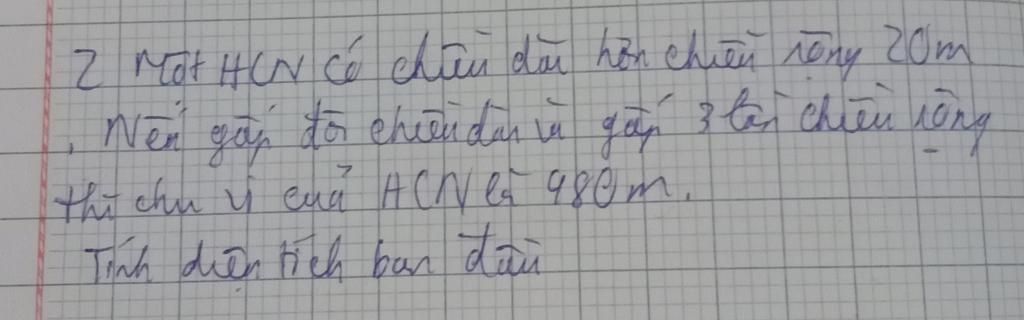 2 Một HCN có chiều dài hơn chiều rộng 20m
. Nếu gấp đôi chiều dài và gấp 3 lần chiều rộng
thì chu vi của HCN là 980m.
Tính diện tích ban đầu